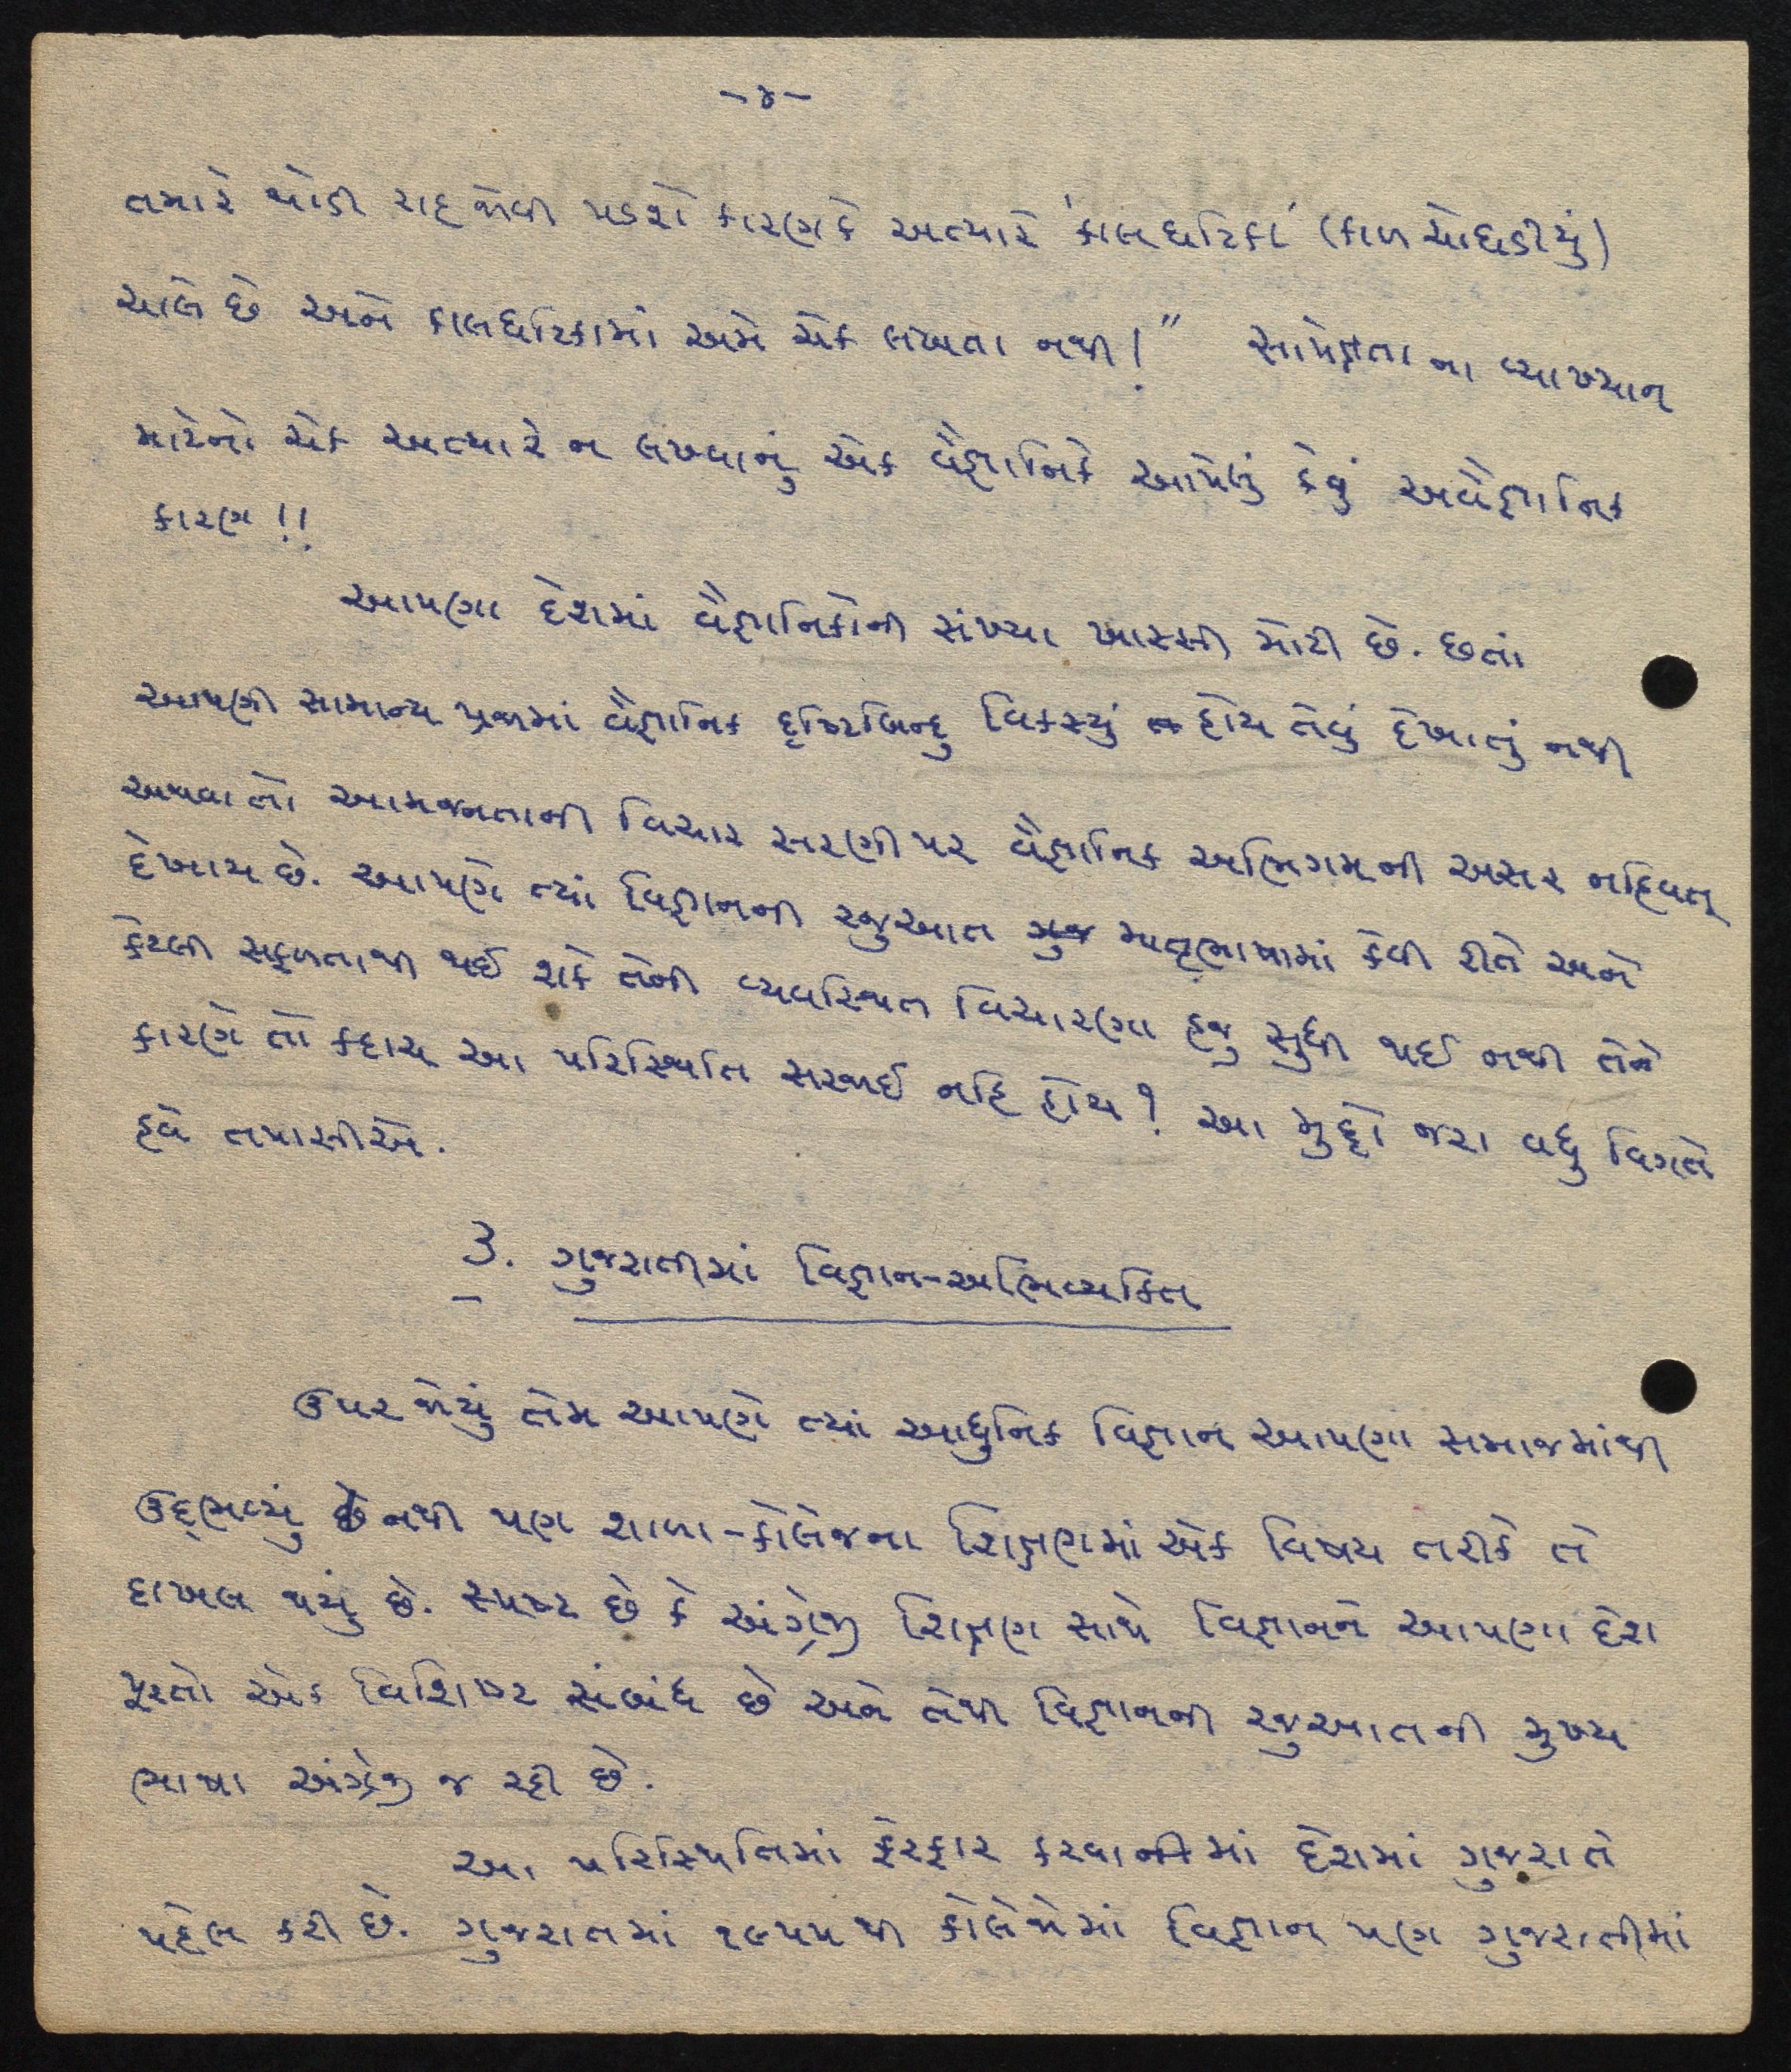 -૪-
તમારે થોડી રાહ જોવી પડશે કારણકે અત્યારે 'કાલઘટિકા' (કાળ ચોઘડીયું)
ચાલે છે અને કાલઘટિકામાં અમે ચેક લખતા નથી!" સાપેક્ષતા ના વ્યાખ્યાન
માટેનો ચેક અત્યારે ન લખવાનું એક વૈજ્ઞાનિકે આપેલું કેવું અવૈજ્ઞાનિક
કારણ!!
આપણા દેશમાં વૈજ્ઞાનિકોની સંખ્યા ખાસ્સી મોટી છે. છતાં
આપણી સામાન્ય પ્રજામાં વૈજ્ઞાનિક દૃષ્ટિબિન્દુ વિકસ્યું હોય તેવું દેખાતું નથી
અથવા તો આમજનતાની વિચાર સરણી પર વૈજ્ઞાનિક અભિગમની અસર નહિવત્
દેખાય છે. આપણે ત્યાં વિજ્ઞાનની રજુઆત ગુજ માતૃભાષામાં કેવી રીતે અને
કેટલી સફળતાથી થઈ શકે તેની વ્યવસ્થિત વિચારણા હજુ સુધી થઈ નથી તેને
કારણે તો કદાચ આ પરિસ્થિતિ સરજાઈ નહિ હોય? આ મુદ્દો જરા વધુ વિગતે
હવે તપાસીએ.
૩. ગુજરાતીમાં વિજ્ઞાન-અભિવ્યક્તિ
ઉપર જોયું તેમ આપણે ત્યાં આધુનિક વિજ્ઞાન આપણા સમાજમાંથી
ઉદ્ભવ્યું છે નથી પણ શાળા-કોલેજના શિક્ષણમાં એક વિષય તરીકે તે
દાખલ થયું છે. સ્પષ્ટ છે કે અંગ્રેજી શિક્ષણ સાથે વિજ્ઞાનને આપણા દેશ
પૂરતો એક વિશિષ્ટ સંબંધ છે અને તેથી વિજ્ઞાનની રજુઆતની મુખ્ય
ભાષા અંગ્રેજી જ રહી છે.
આ પરિસ્થિતિમાં ફેરફાર કરવાનીમાં દેશમાં ગુજરાતે
પહેલ કરી છે. ગુજરાતમાં ૧૯૫૫થી કોલેજોમાં વિજ્ઞાન પણ ગુજરાતીમાં